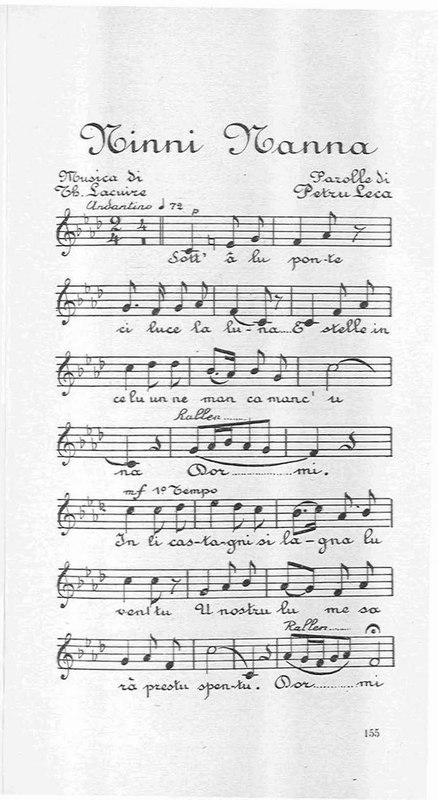 Ninni Nanna
Musica di
Th. Lacuire
Parolle di
Petru Leca
Andantino ♩ 72
2 4
4 1
p
Sott' â lu pon-te
ci luce la lu-na.... E stelle in
celu un ne man ca manc' u
Rallen........
na Dor............... mi.
mf 1º Tempo
In li cas-ta-gni si la-gna lu
ventu U nostru lu me sa
Rallen........
rà prestu spen-tu. Dor............ mi
155